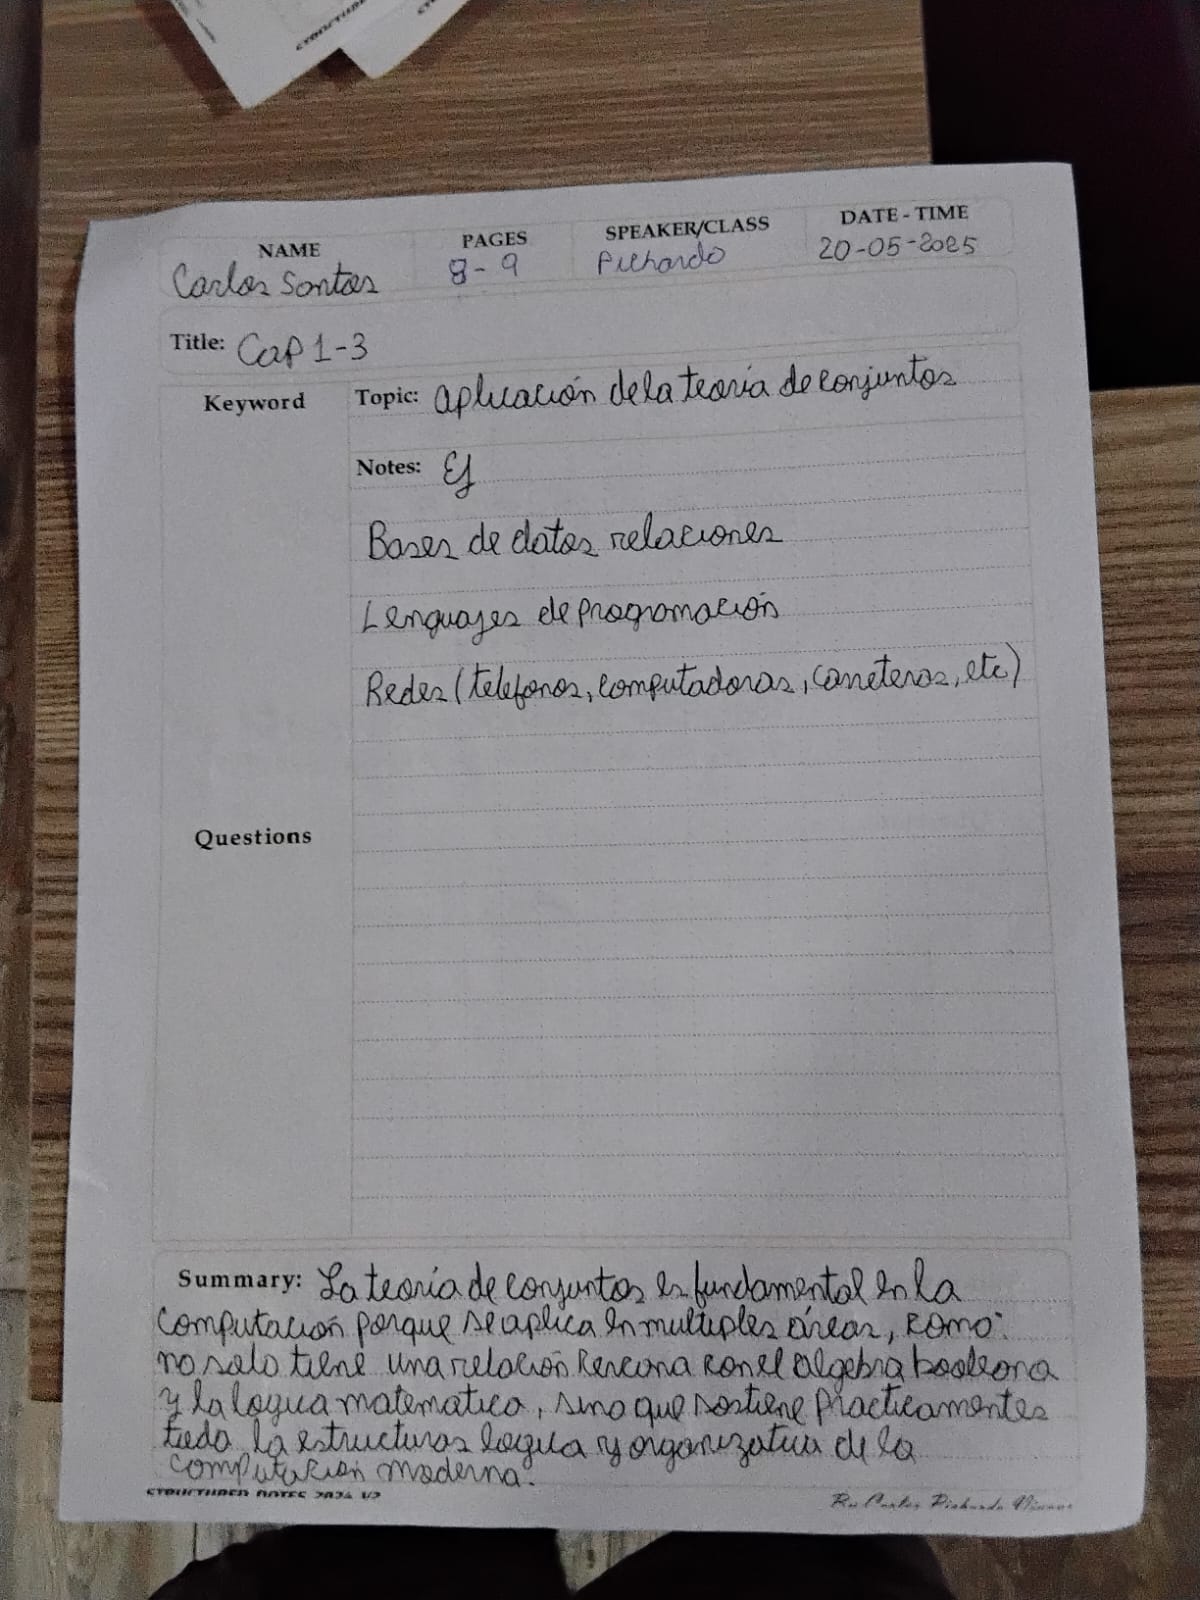 NAME
PAGES
SPEAKER/CLASS
DATE - TIME
Carlos Santos
8-9
Pichardo
20-05-2025
Title: Cap 1-3
Keyword
Topic: Aplicación de la teoría de conjuntos
Notes: Ej
Bases de datos relaciones
Lenguajes de programación
Redes (telefonos, computadoras, carreteras, etc)
Questions
Summary: La teoría de conjuntos es fundamental en la
computación porque se aplica en multiples áreas, como:
no solo tiene una relación cercana con el algebra booleana
y la logica matematica, sino que sostiene practicamentes
toda la estructuras logica y organizativa de la
computacion moderna.
STRUCTURED NOTES 2024 V2